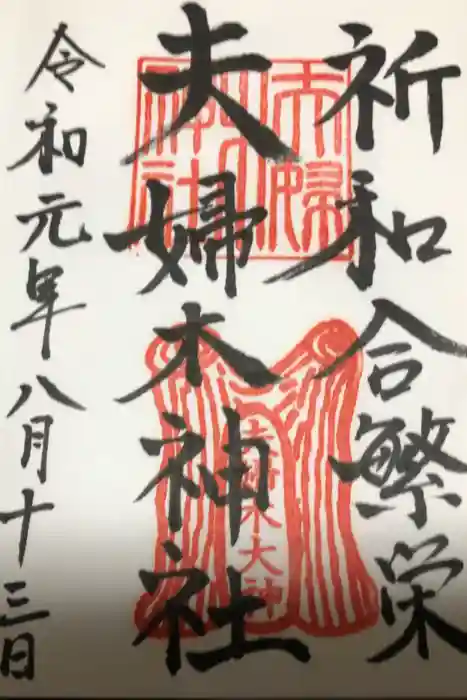 祈和合繁栄
夫婦木神社
令和元年八月十三日
夫婦木神社
夫婦木大神